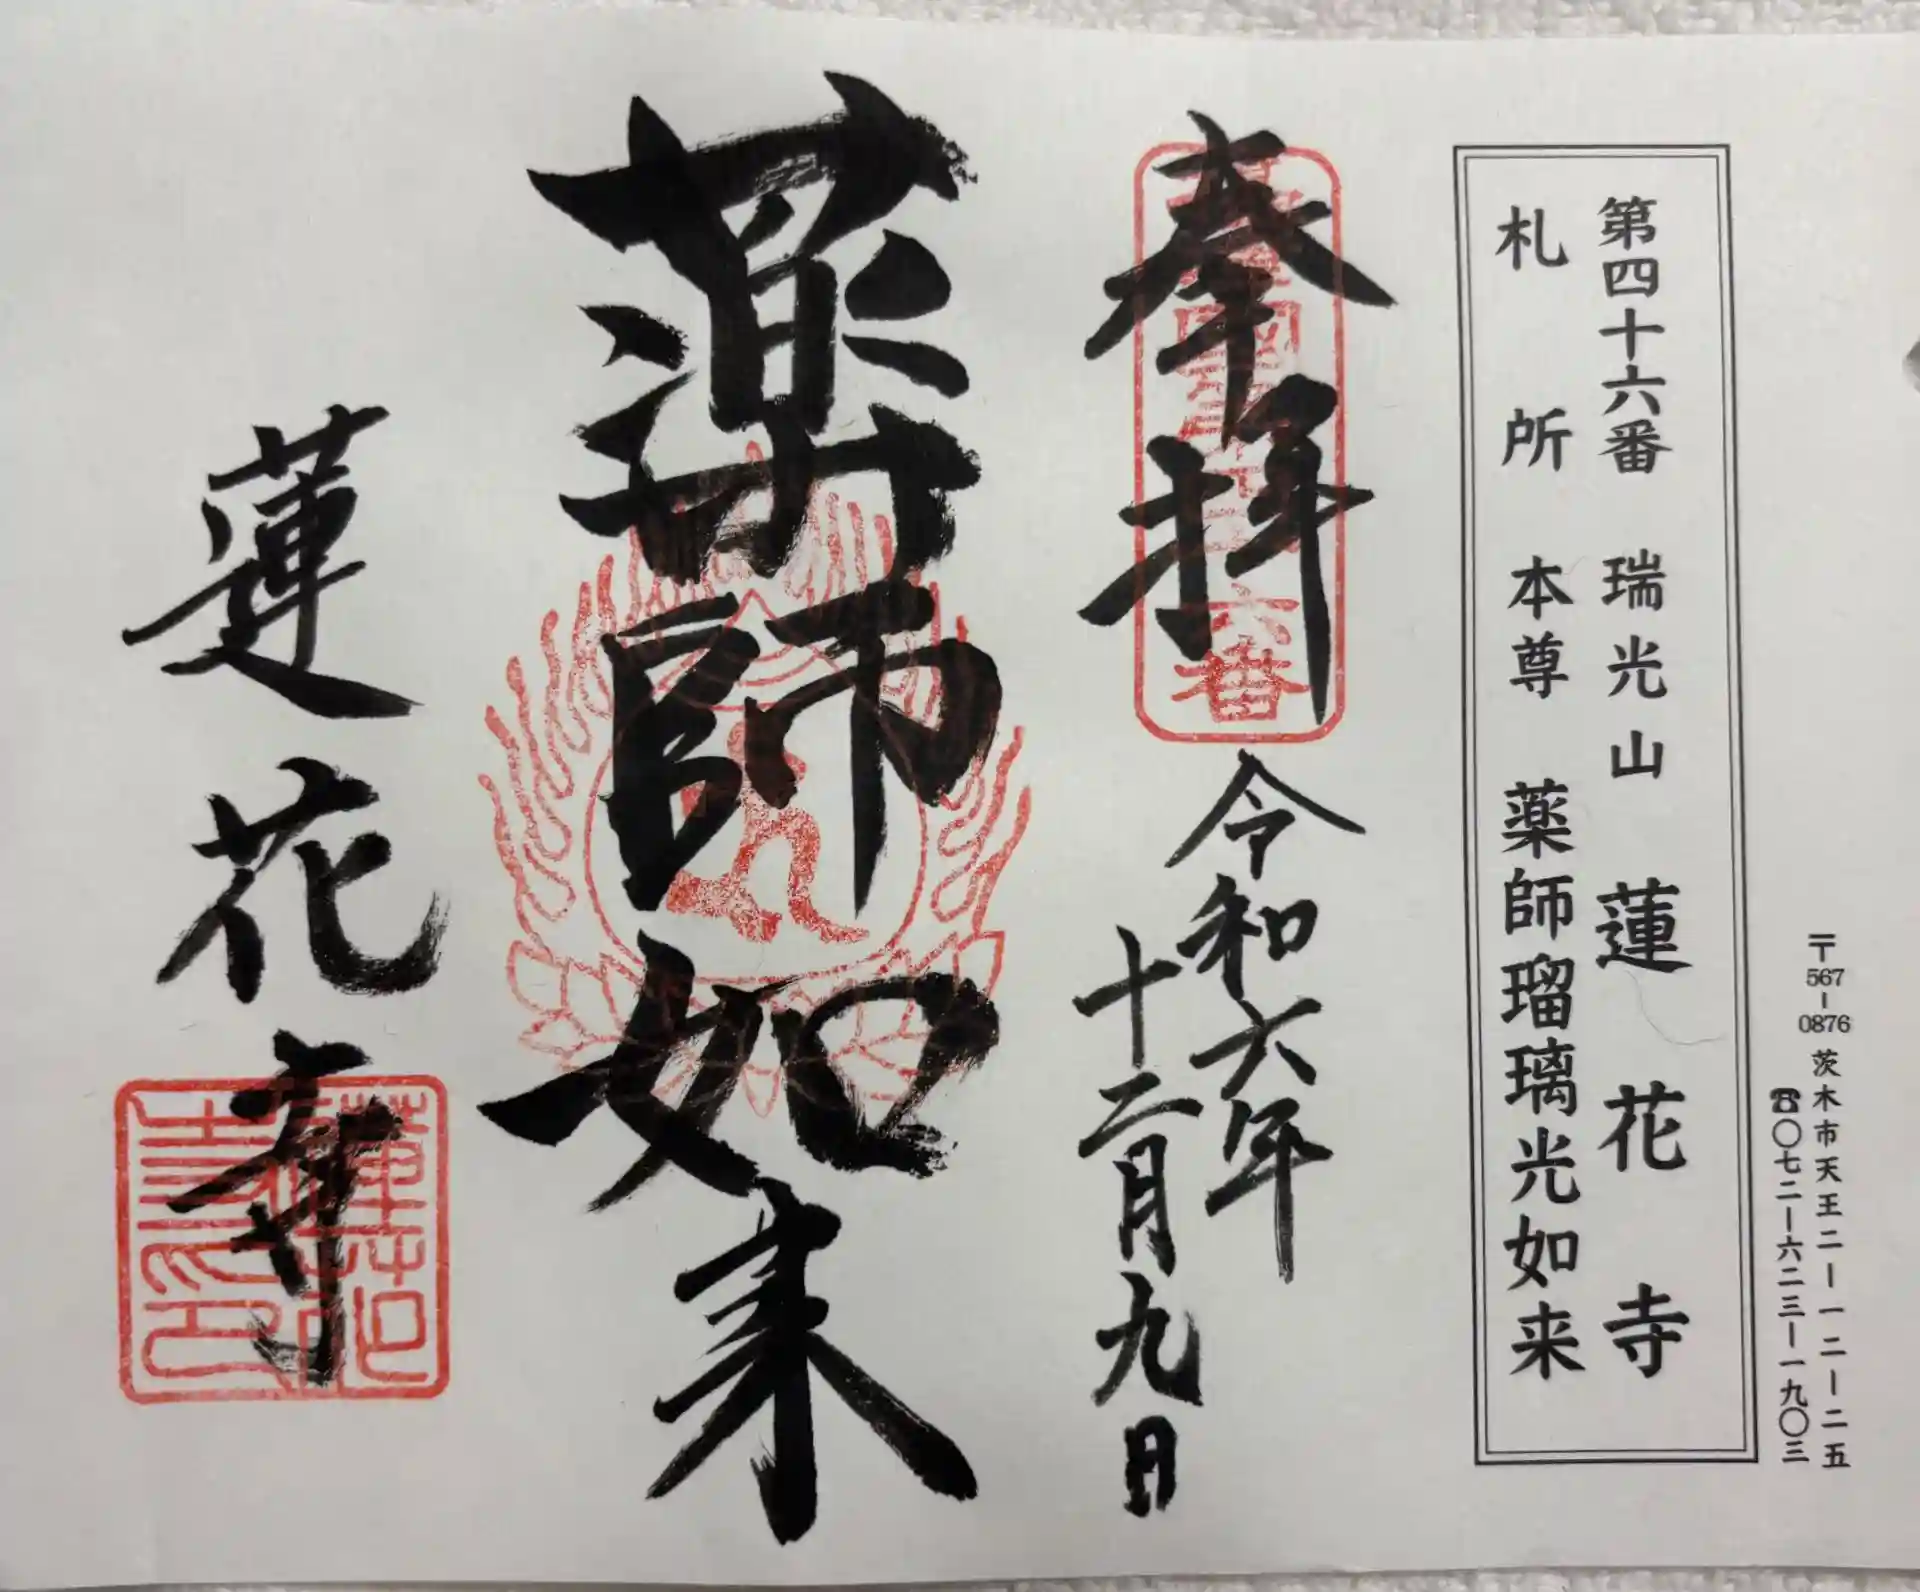 〒567-0876 茨木市天王二ー一二ー二五
☎〇七二ー六二三ー一九〇三
第四十六番 瑞光山 蓮花寺
札所 本尊 薬師瑠璃光如来
奉拝
六番
令和六年
十二月九日
薬師如来
蓮花寺
蓮花
寺印